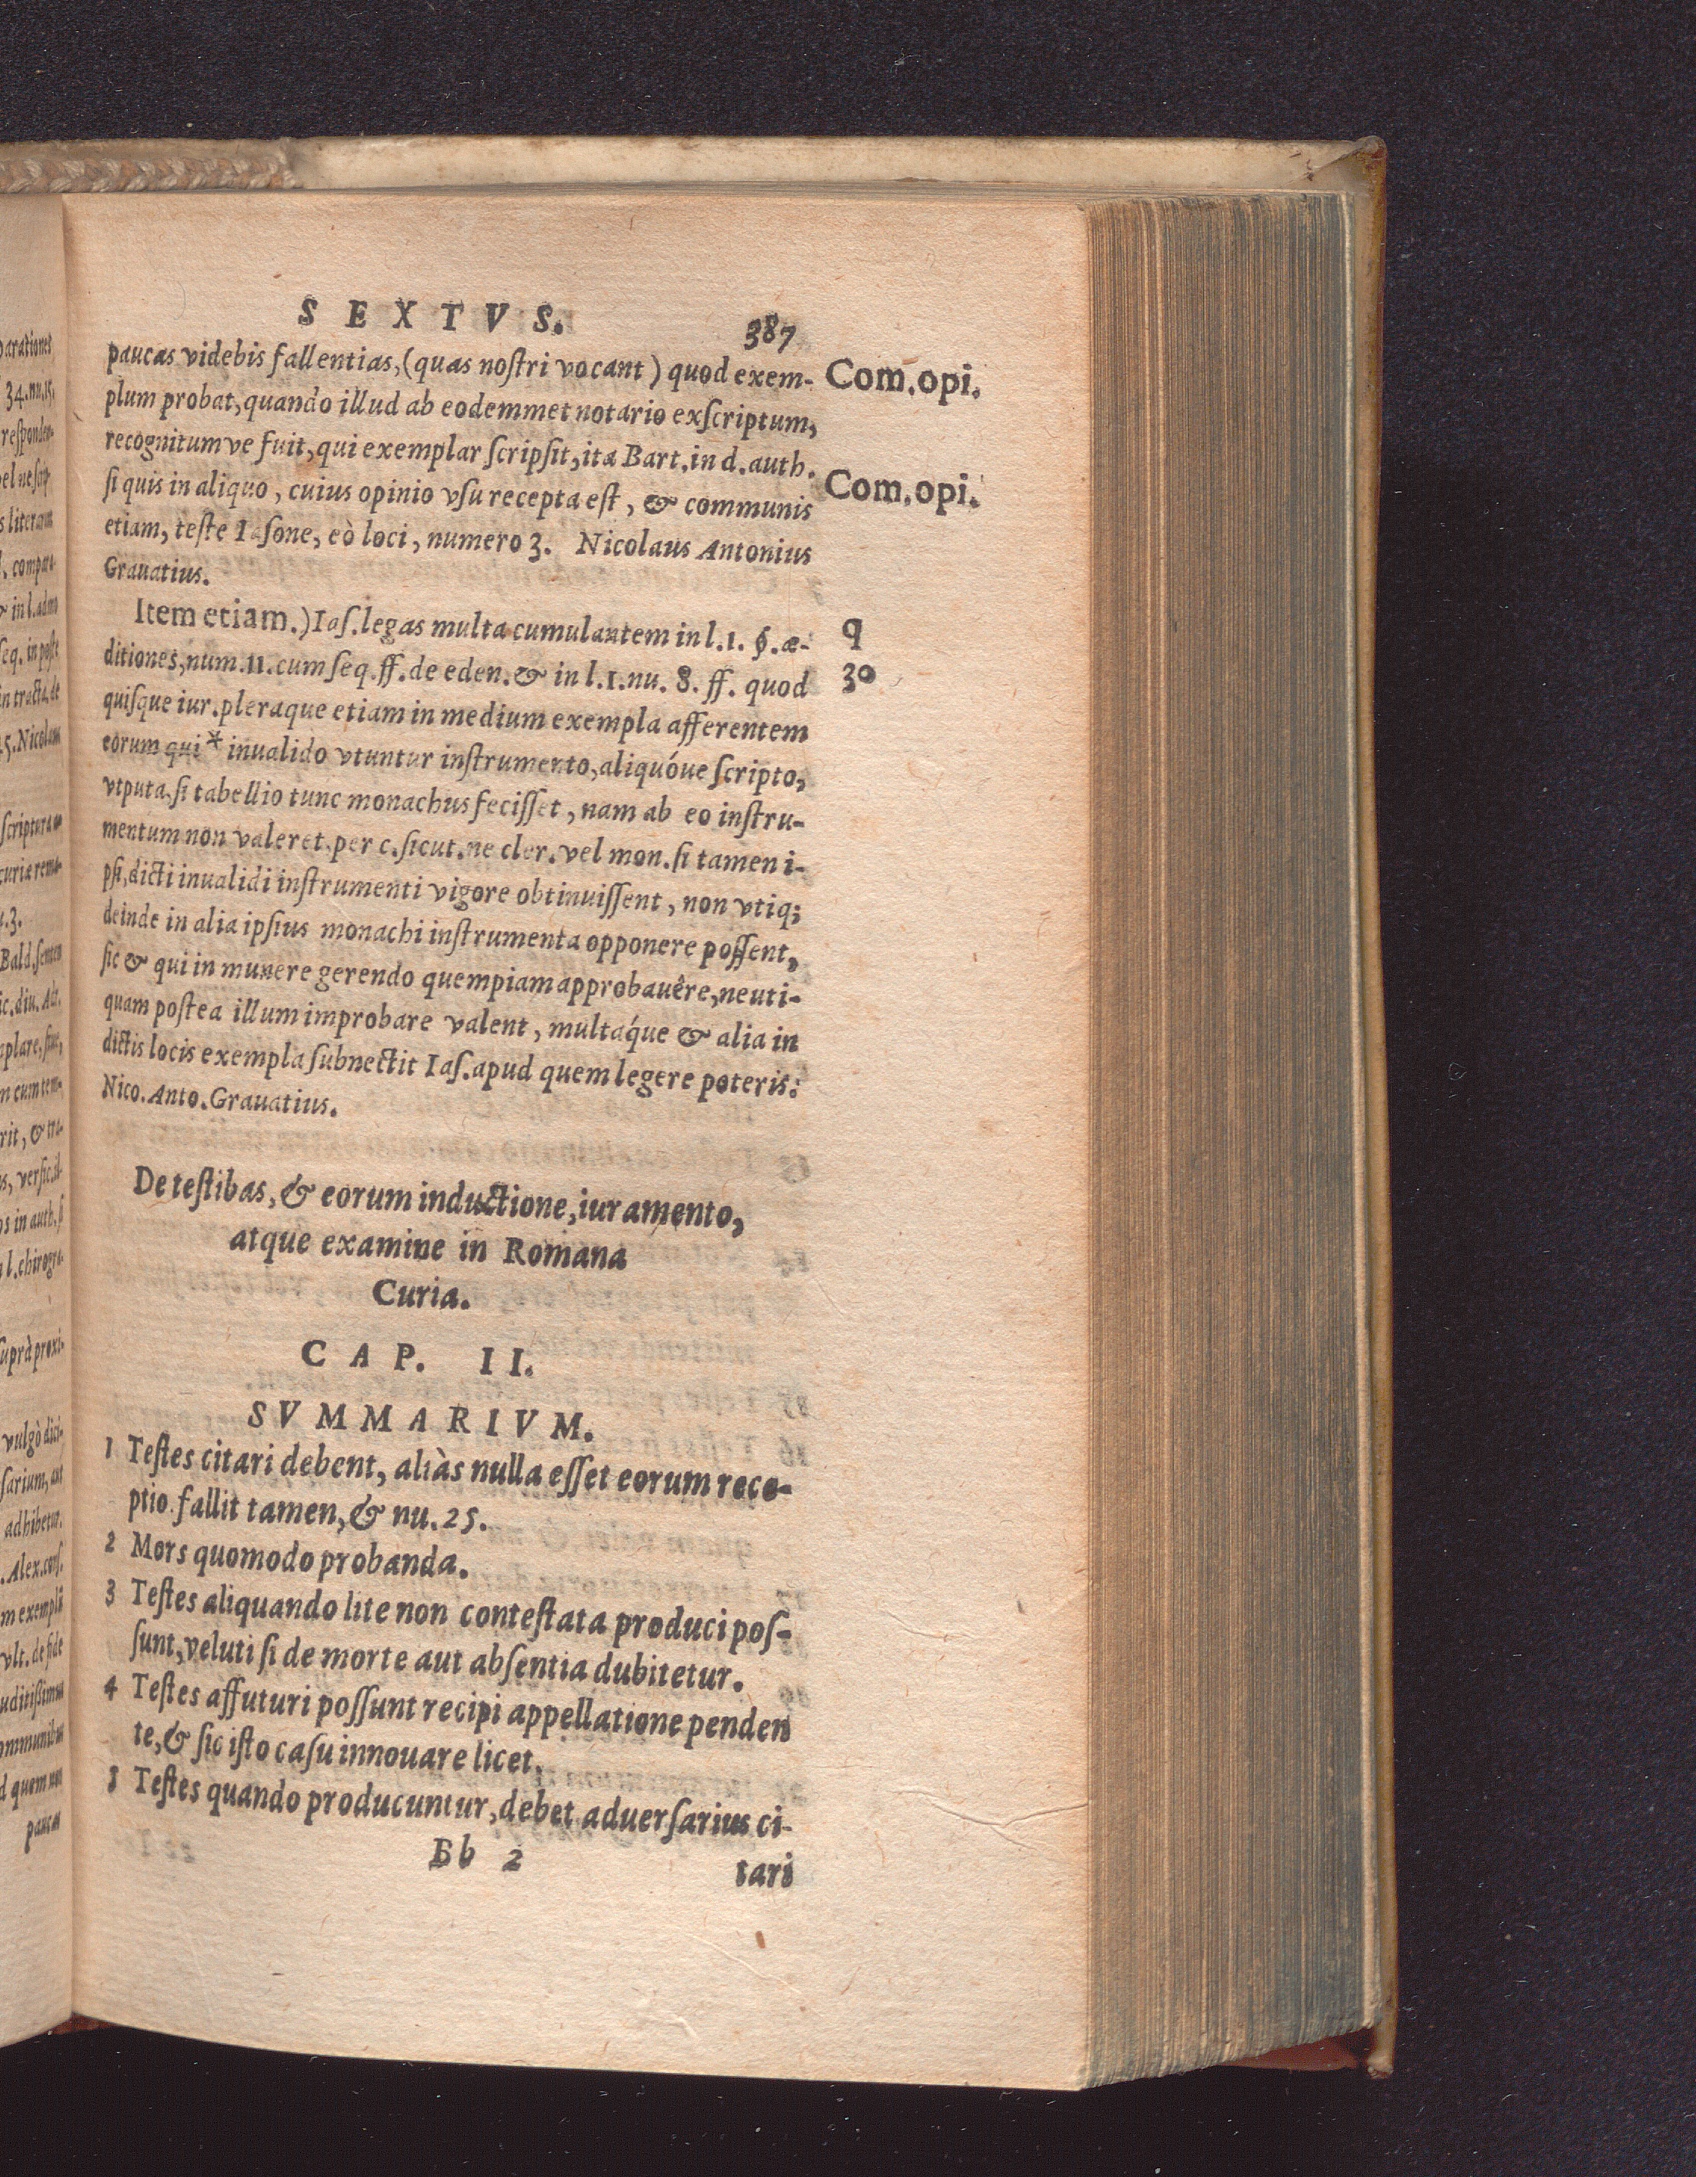 SEXTVS. 387
paucas videbis fallentias, (quas noſtri vocant) quod exem-
Com. opi.
plum probat, quando illud ab eodemmet notario exſcriptum,
recognitumve fuit, qui exemplar ſcripſit, ita Bart. in d. auth.
ſi quis in aliquo, cuius opinio vſu recepta eſt, & communis
Com. opi.
etiam, teſte Iaſone, eò loci, numero 3. Nicolaus Antonius
Grauatius.
Item etiam.) Iaſ. legas multa cumulantem in l. 1. §. æ-
q
ditiones, num. 11. cum ſeq. ff. de eden. & in l. 1. nu. 8. ff. quod
30
quiſque iur. pleraque etiam in medium exempla afferentem
eorum qui * inualido vtuntur inſtrumento, aliquóue ſcripto,
vtputa, ſi tabellio tunc monachus feciſſet, nam ab eo inſtru-
mentum non valeret. per c. ſicut. ne cler. vel mon. ſi tamen i-
pſi, dicti inualidi inſtrumenti vigore obtinuiſſent, non vtiq;
deinde in alia ipſius monachi inſtrumenta opponere poſſent,
ſic & qui in munere gerendo quempiam approbauêre, neuti-
quam poſtea illum improbare valent, multáque & alia in
dictis locis exempla ſubnectit Iaſ. apud quem legere poteris:
Nico. Anto. Grauatius.
De teſtibas, & eorum inductione, iuramento,
atque examine in Romana
Curia.
CAP. II.
SVMMARIVM.
1 Teſtes citari debent, aliàs nulla eſſet eorum rece-
ptio. fallit tamen, & nu. 25.
2 Mors quomodo probanda.
3 Teſtes aliquando lite non conteſtata produci poſ-
ſunt, veluti ſi de morte aut abſentia dubitetur.
4 Teſtes affuturi poſſunt recipi appellatione penden
te, & ſic iſto caſu innouare licet.
5 Teſtes quando producuntur, debet aduerſarius ci-
Bb 2 tari